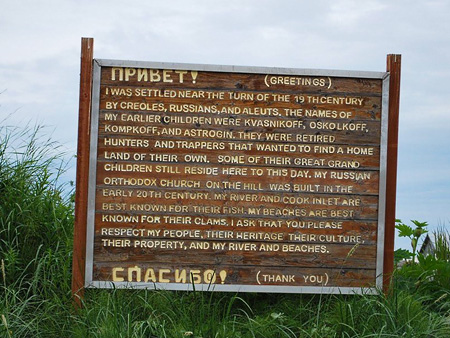 ПРИВЕТ! (GREETINGS)
I WAS SETTLED NEAR THE TURN OF THE 19TH CENTURY
BY CREOLES, RUSSIANS, AND ALEUTS. THE NAMES OF
MY EARLIER CHILDREN WERE KVASNIKOFF, OSKOLKOFF,
KOMPKOFF, AND ASTROGIN. THEY WERE RETIRED
HUNTERS AND TRAPPERS THAT WANTED TO FIND A HOME
LAND OF THEIR OWN. SOME OF THEIR GREAT GRAND
CHILDREN STILL RESIDE HERE TO THIS DAY. MY RUSSIAN
ORTHODOX CHURCH ON THE HILL WAS BUILT IN THE
EARLY 20TH CENTURY. MY RIVER AND COOK INLET ARE
BEST KNOWN FOR THEIR FISH. MY BEACHES ARE BEST
KNOWN FOR THEIR CLAMS. I ASK THAT YOU PLEASE
RESPECT MY PEOPLE, THEIR HERITAGE, THEIR CULTURE,
THEIR PROPERTY, AND MY RIVER AND BEACHES.
СПАСИБО! (THANK YOU)